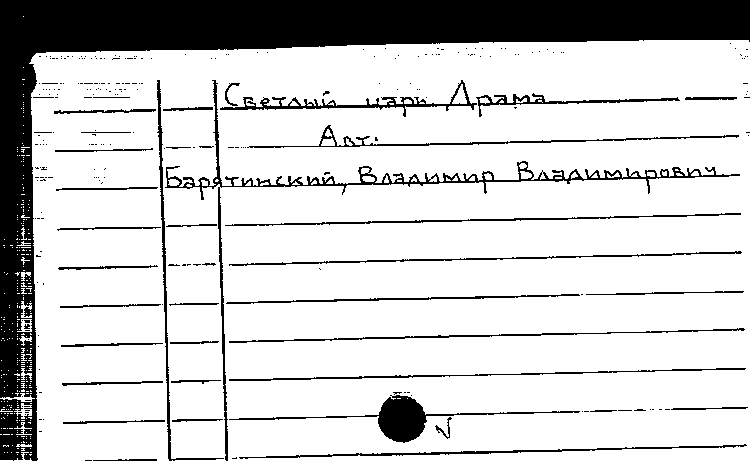 Светлый царь. Драма
Авт.:
Барятинский, Владимир Владимирович